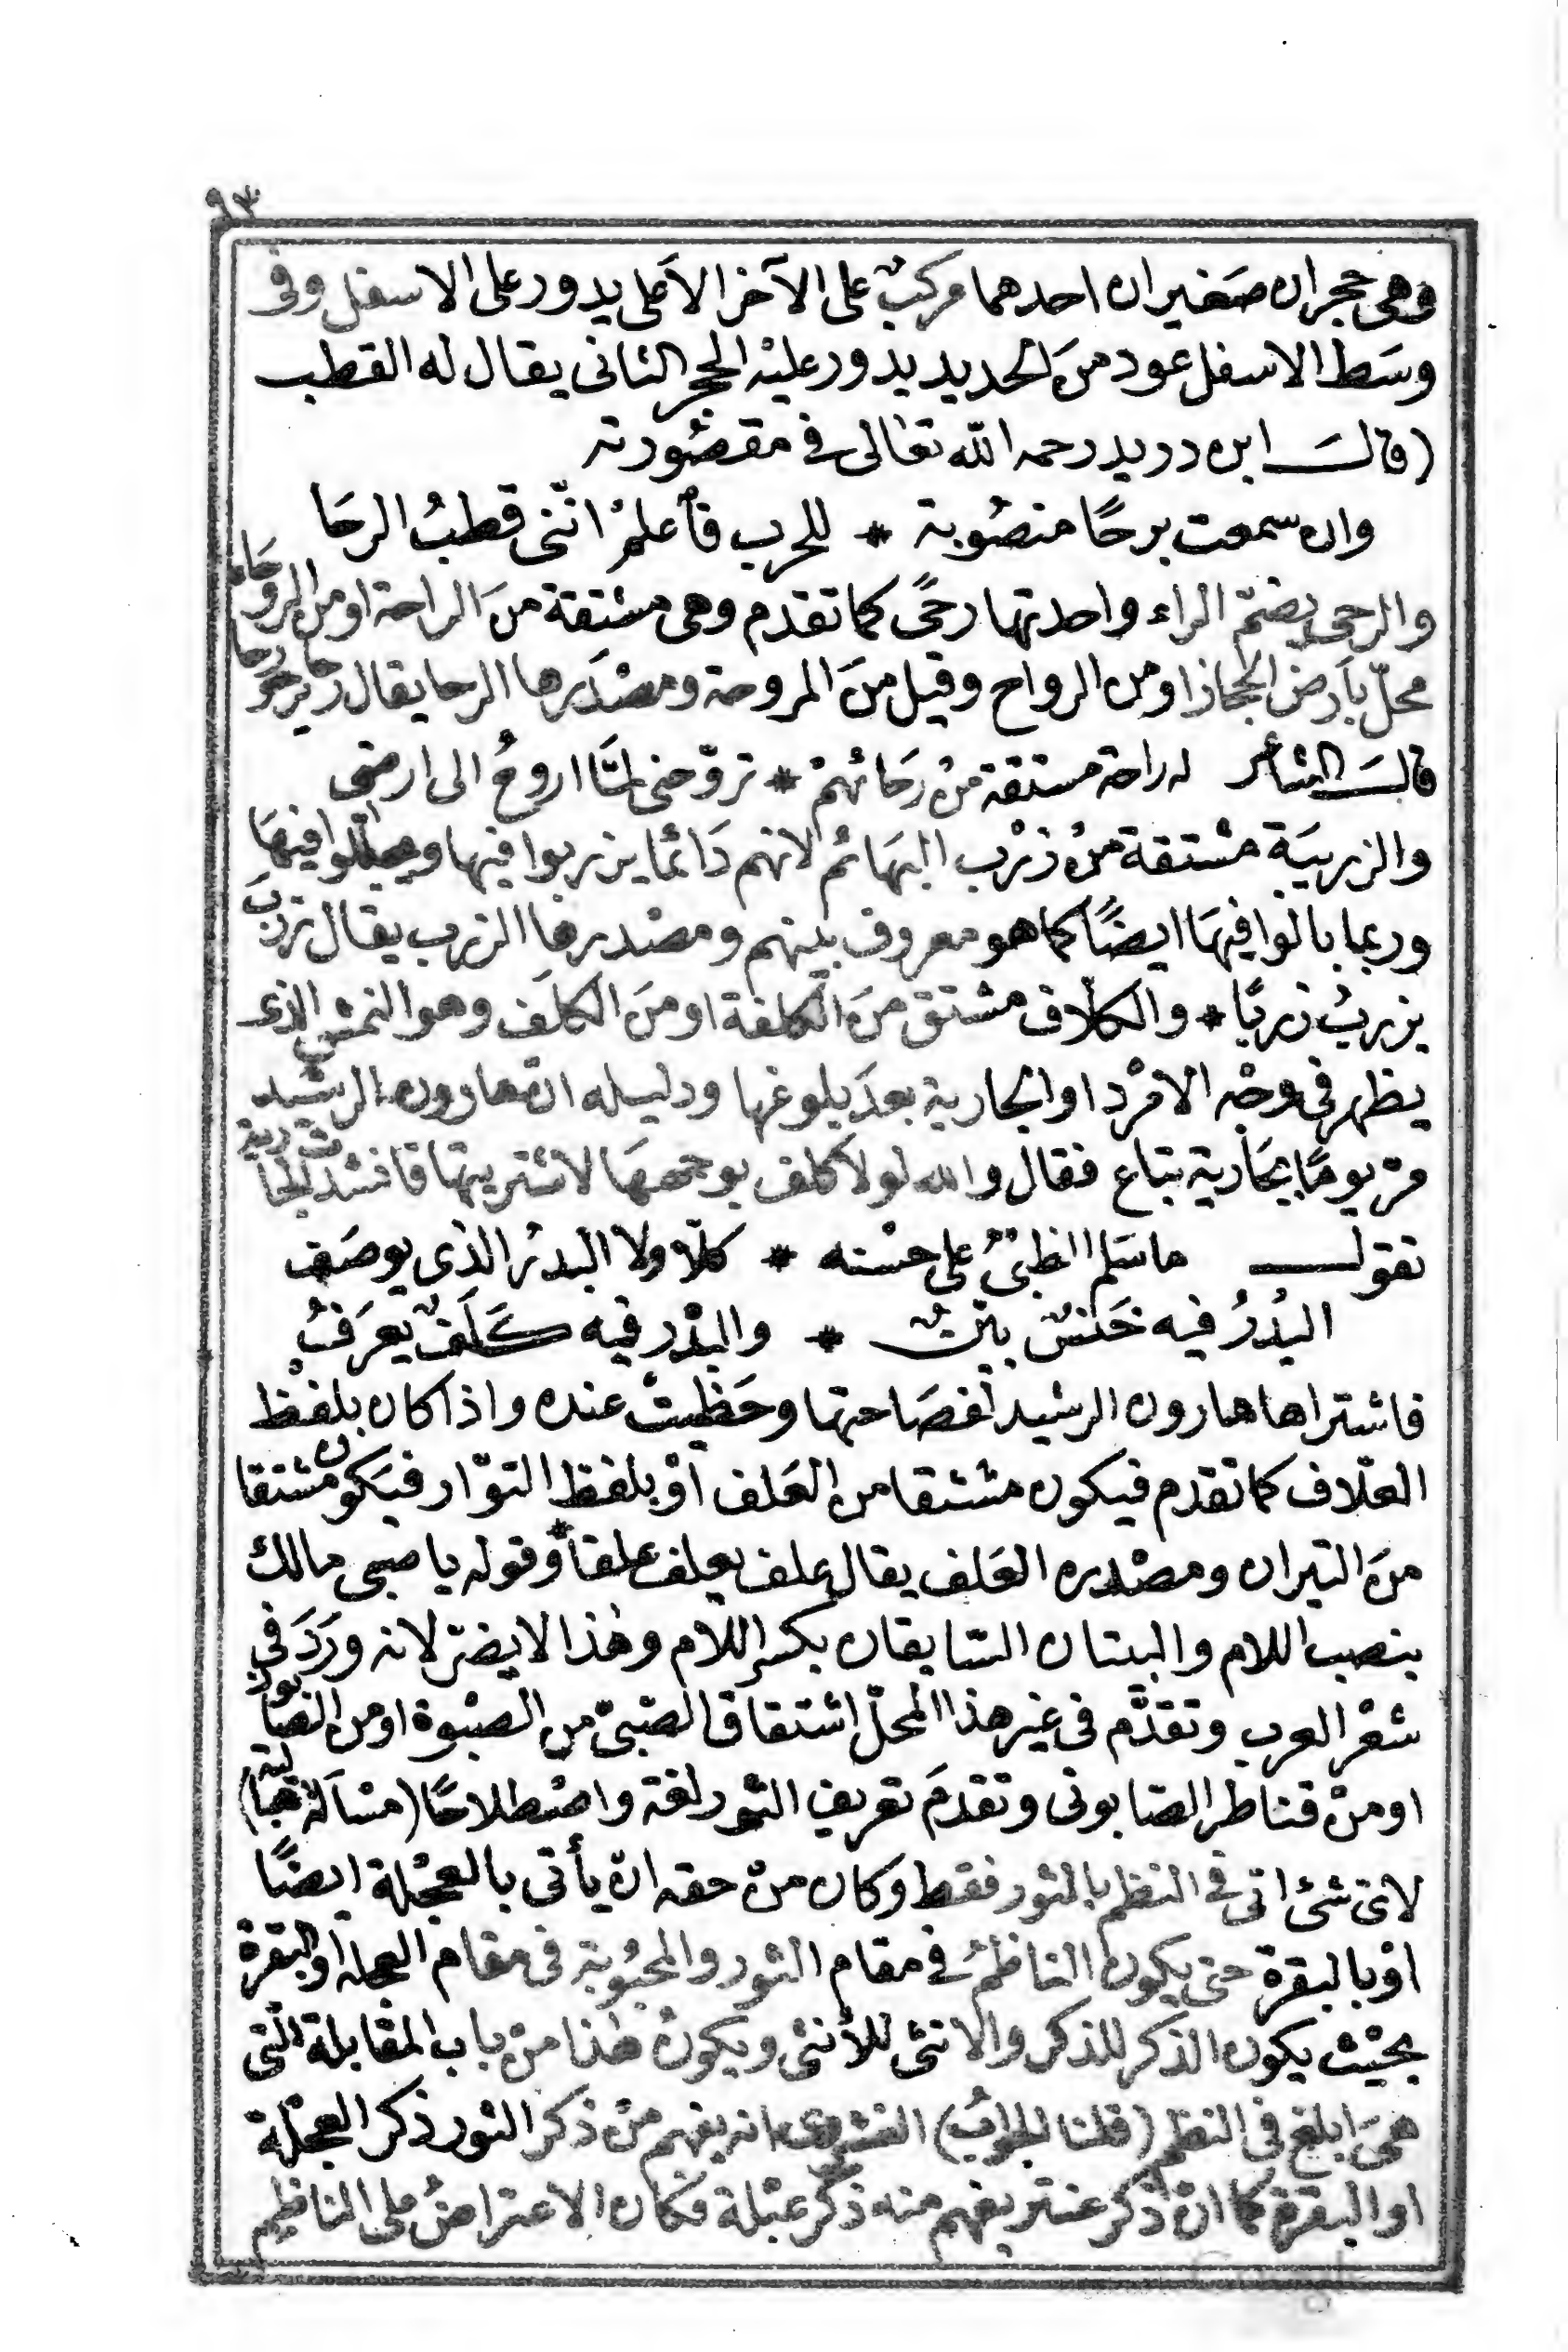 ٩٣
وهي حجران صَغيران احدهما مركبٌ على الآخر الاَعلى يدور على الاسفل وفى
وسَط الاسفل عود منَ الحديد يدور عليْه الحجر الثانى يقال له القطب
(قالَ ابن دريد رحمه الله تعالى فى مقصُورته
وان سمعت برحًا منصُوبة * للحرب فأعلمْ انّنى قطبُ الرحَا
والرحى بضمّ الراء واحدتها رحىً كما تقدم وهى مشتقة منَ الراحة او من الروحَاء
محلّ بأرض الحجاز او من الرواح وقيل منَ المروحة ومصْدَرها الرحا يقال رحا يرحو رحا
قالَ الشاعر له راحة مشتقة منْ رَحائهمْ * تروّحنى لمَّا اروحُ الى ارضى
والزريبَة مشْتقة منْ زرْب البهَائم لانهم دَائما يزربوا فيها ويصلّوا فيهَا
وربما بالوا فيهَا ايضًا كما هو معروف بينهم ومصْدرها الزرب يقال زربَ
يزربُ زربًا * والكلاّف مشتق منَ الكلفة او منَ الكلَف وهو النمش الذى
يظهر فى وجْه الامْرد او الجارية بعدَ بلوغها ودليله انّ هارون الرشيد
مرّ يومًا بجَارية تباع فقال والله لولا كلف بوجههَا لاشتريتها فانشدت الجارية
تقول ماسَلم الظبىُ على حسْنه * كلاّ ولا البدرُ الذى يوصَف
البدرُ فيه خَنسٌ بيّنٌ * والبدْر فيه كَلَفٌ يعرَفُ
فاشتراها هارون الرشيد لفصَاحتها وحَظيتْ عنده واذا كان بلفظ
العلاّف كما تقدم فيكون مشتقا من العَلف اوْ بلفظ التوّار فيَكون مشتقا
منَ التيران ومصْدره العَلف يقال علف يعلف علفاً * وقوله يا صبى مالك
بنصب اللام والبيتان السّابقان بكسر اللام وهٰذا لا يضرّ لانه ورَدَ فى
شعْر العرب وتقدَّم فى غير هذا المحلّ اشتقاق الصّبىّ من الصبْوة او من الصّابون
او منْ قناطر الصّابونى وتقدمَ تعريف الثور لغة واصْطلاحًا (مسْاَلة هبالية)
لاىّ شئ اتى فى النظم بالثور فقط وكان منْ حقه انْ يأتى بالعجْلة ايضًا
اوْ بالبقرة حتى يكون الناظمُ فى مقام الثور والمحبُوبة فى مقام العجلة او البقرة
بحيْث يكون الذكر للذكر والانثى للأنثى ويكونُ هٰذا منْ باب المقابلة الّتى
همىَ ابلغ فى النظم (قلنا الجوابُ) الفشروى انه يفهم منْ ذكر الثور ذكر العجْلة
او البقرة كما انّ ذكر عنتر يفهم منه ذكر عبْلة فكان الاعتراضُ على الناظم